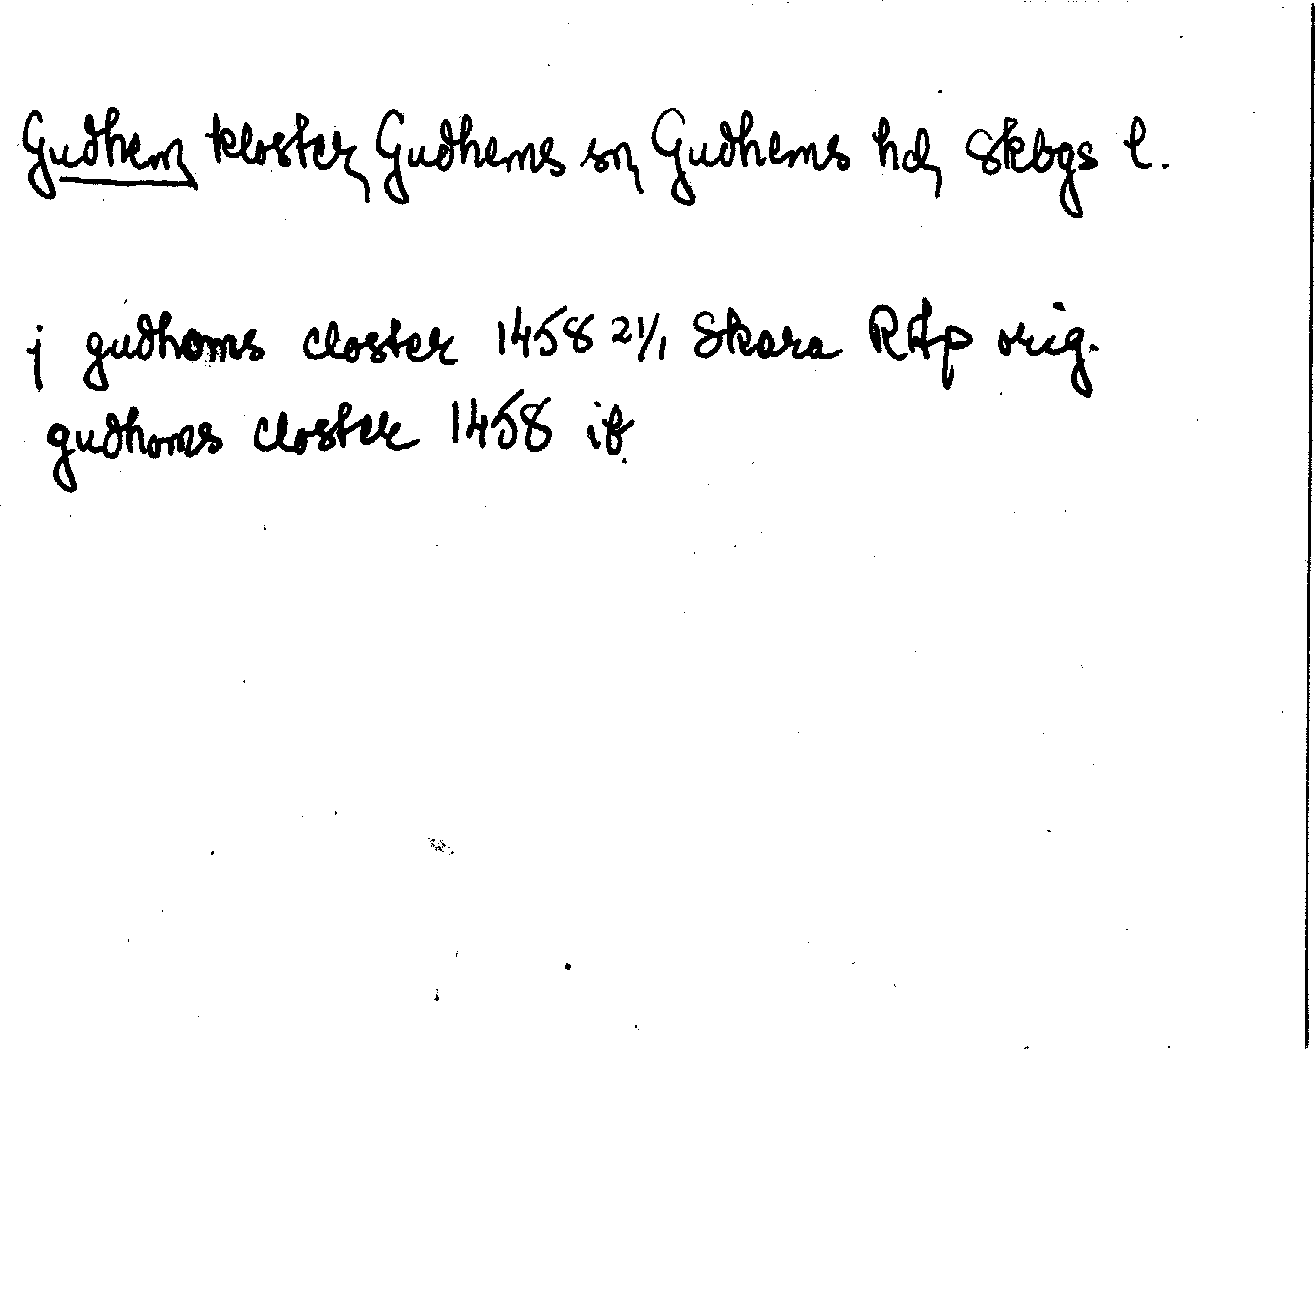 Gudhem, kloster, Gudhems sn, Gudhems hd, Skbgs l.
j gudhoms closter 1458 21/1 Skara RAp orig.
gudhoms closter 1458 ib.